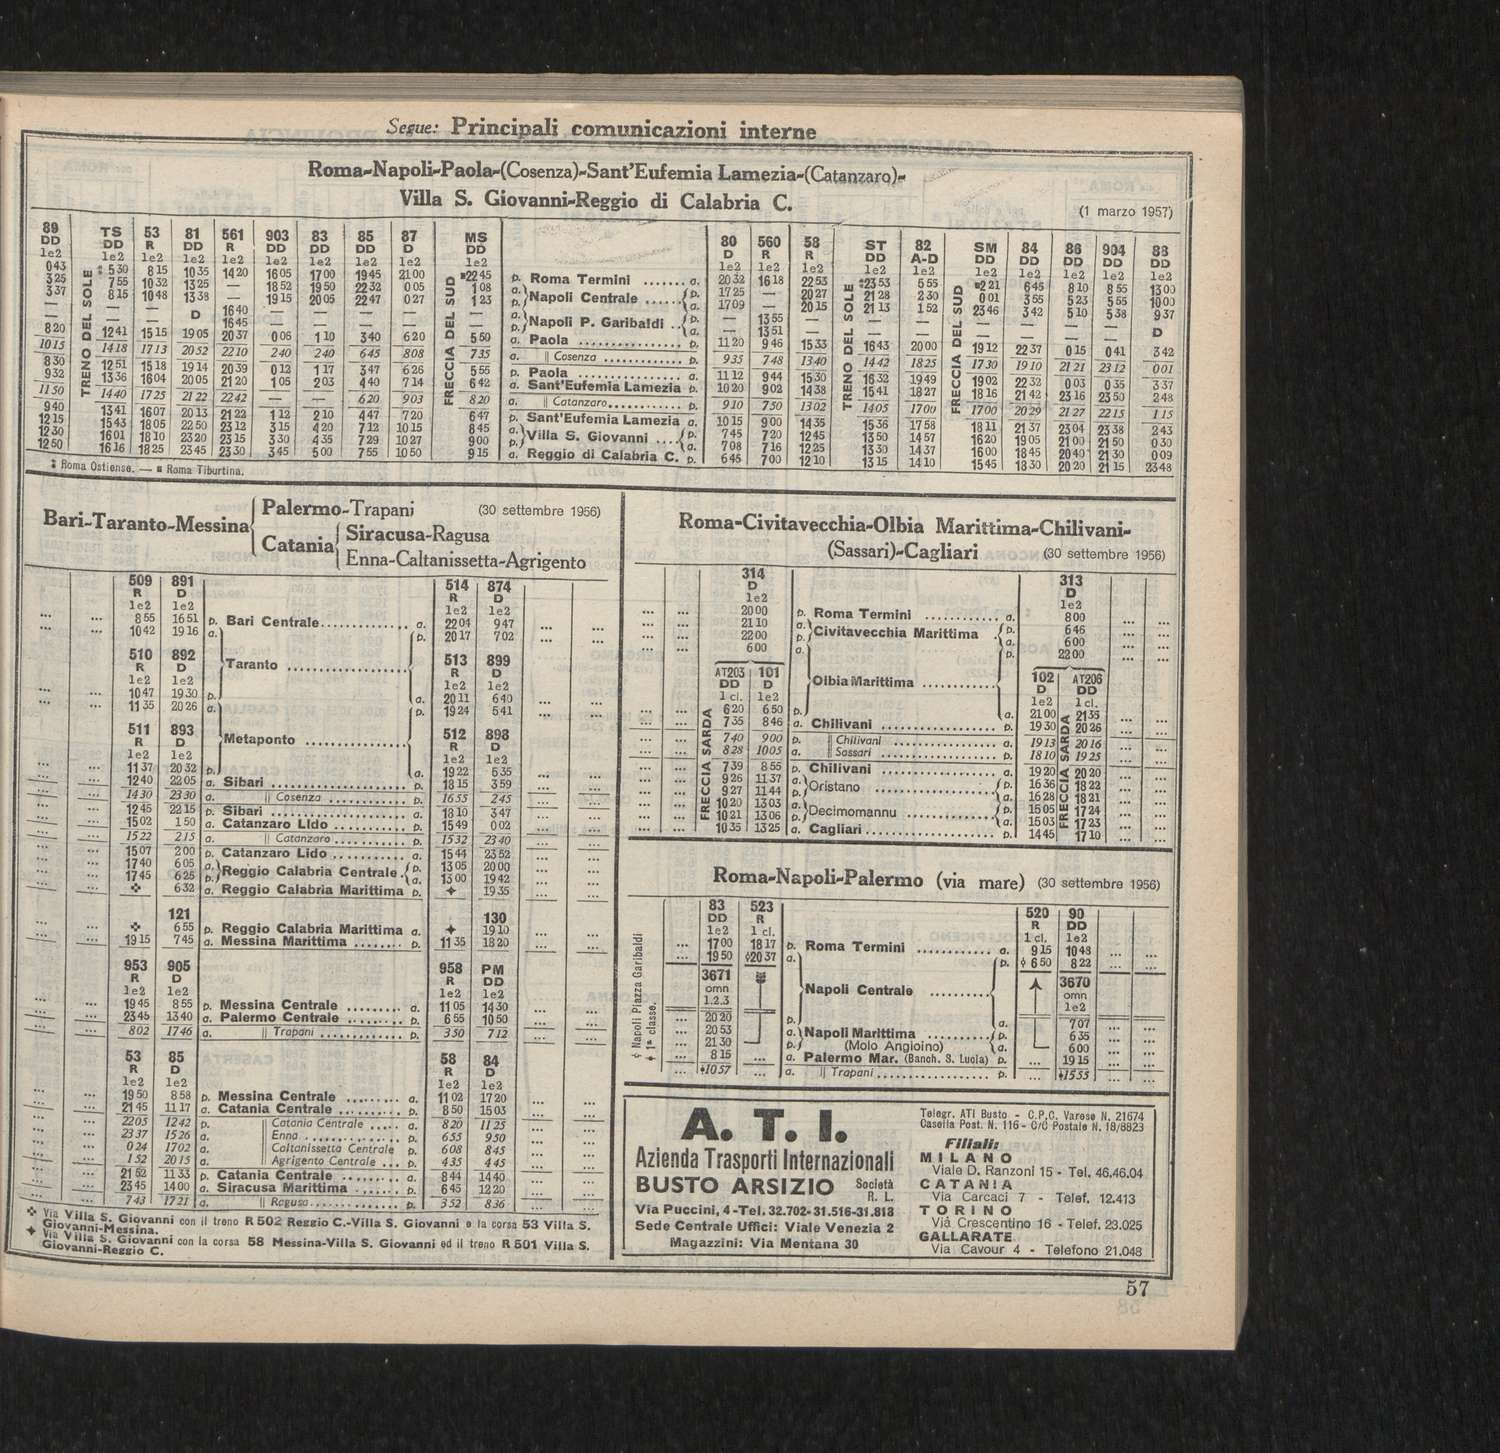 Segue: Principali comunicazioni interne
Roma-Napoli-Paola-(Cosenza)-Sant'Eufemia Lamezia-(Catanzaro)-
Villa S. Giovanni-Reggio di Calabria C.
(1 marzo 1957)
89 TS 53 81 561 903 83 85 87 MS 80 560 58 ST 82 SM 84 86 904 88
DD DD R DD R DD DD DD D DD D R R DD A-D DD DD DD DD DD
1e2 1e2 1e2 1e2 1e2 1e2 1e2 1e2 1e2 1e2 1e2 1e2 1e2 1e2 1e2 1e2 1e2 1e2 1e2 1e2
TRENO DEL SOLE
FRECCIA DEL SUD
TRENO DEL SOLE
FRECCIA DEL SUD
0 43 ‡ 5 30 8 15 10 35 14 20 16 05 17 00 19 45 21 00 ¤22 45 p. Roma Termini ....... a. 20 32 16 18 22 53 ‡23 53 5 55 ¤2 21 6 45 8 10 8 55 13 00
3 25 7 55 10 32 13 25 — 18 52 19 50 22 32 0 05 1 08 a. Napoli Centrale ...... p. 17 25 — 20 27 21 28 2 30 0 01 3 55 5 23 5 55 10 00
3 37 8 15 10 48 13 38 — 19 15 20 05 22 47 0 27 1 23 p. a. 17 09 — 20 15 21 13 1 52 23 46 3 42 5 10 5 38 9 37
— — — D 16 40 — — — — — a. Napoli P. Garibaldi .. p. — 13 55 — — — — — — — —
— — — 16 45 — — — — — p. a. — 13 51 — — — — — — — D
8 20 12 41 15 15 19 05 20 37 0 06 1 10 3 40 6 20 5 50 a. Paola ............... p. 11 20 9 46 15 33 16 43 20 00 19 12 22 37 0 15 0 41 3 42
10 15 14 18 17 13 20 52 22 10 2 40 2 40 6 45 8 08 7 35 a. || Cosenza ............ p. 9 35 7 48 13 40 14 42 18 25 17 30 19 10 21 21 23 12 0 01
8 30 12 51 15 18 19 14 20 39 0 12 1 17 3 47 6 26 5 55 p. Paola ............... a. 11 12 9 44 15 30 16 32 19 49 19 02 22 32 0 03 0 35 3 37
9 32 13 36 16 04 20 05 21 20 1 05 2 03 4 40 7 14 6 42 a. Sant'Eufemia Lamezia p. 10 20 9 02 14 38 15 41 18 27 18 16 21 42 23 16 23 50 2 48
11 50 14 40 17 25 21 22 22 42 — — 6 20 9 03 8 20 a. || Catanzaro........... p. 9 10 7 50 13 02 14 05 17 00 17 00 20 29 21 27 22 15 1 15
9 40 13 41 16 07 20 13 21 22 1 12 2 10 4 47 7 20 6 47 p. Sant'Eufemia Lamezia a. 10 15 9 00 14 35 15 36 17 58 18 11 21 37 23 04 23 38 2 43
12 15 15 43 18 05 22 50 23 12 3 15 4 20 7 12 10 15 8 45 a. Villa S. Giovanni .... p. 7 45 7 20 12 45 13 50 14 57 16 20 19 05 21 00 21 50 0 30
12 30 16 01 18 10 23 20 23 15 3 30 4 35 7 29 10 27 9 00 p. a. 7 08 7 16 12 25 13 30 14 37 16 00 18 45 20 40 21 30 0 09
12 50 16 16 18 25 23 45 23 30 3 45 5 00 7 55 10 50 9 15 a. Reggio di Calabria C. p. 6 45 7 00 12 10 13 15 14 10 15 45 18 30 20 20 21 15 23 48
‡ Roma Ostiense. — ¤ Roma Tiburtina.
Bari-Taranto-Messina Palermo-Trapani (30 settembre 1956)
Catania Siracusa-Ragusa
Enna-Caltanissetta-Agrigento
509 891 514 874
R D R D
1e2 1e2 1e2 1e2
8 55 16 51 p. Bari Centrale............. a. 22 04 9 47
10 42 19 16 a. p. 20 17 7 02
510 892 Taranto .................. 513 899
R D R D
1e2 1e2 1e2 1e2
10 47 19 30 p. a. 20 11 6 40
11 35 20 26 a. p. 19 24 5 41
511 893 Metaponto ............... 512 898
R D R D
1e2 1e2 1e2 1e2
11 37 20 32 p. a. 19 22 5 35
12 40 22 05 a. Sibari ..................... p. 18 15 3 59
14 30 23 30 a. || Cosenza ............. p. 16 55 2 45
12 45 22 15 p. Sibari ..................... a. 18 10 3 47
15 02 1 50 a. Catanzaro Lido ........... p. 15 49 0 02
15 22 2 15 a. || Catanzaro ........... p. 15 32 23 40
15 07 2 00 p. Catanzaro Lido ........... a. 15 44 23 52
17 40 6 05 a. Reggio Calabria Centrale . p. 13 05 20 00
17 45 6 25 p. a. 13 00 19 42
❖ 6 32 a. Reggio Calabria Marittima p. ✦ 19 35
121 130
❖ 6 55 p. Reggio Calabria Marittima a. ✦ 19 10
19 15 7 45 a. Messina Marittima ........ p. 11 35 18 20
953 905 958 PM
R D R DD
1e2 1e2 1e2 1e2
19 45 8 55 p. Messina Centrale ......... a. 11 05 14 30
23 45 13 40 a. Palermo Centrale ......... p. 6 55 10 50
8 02 17 46 a. || Trapani .............. p. 3 50 7 12
53 85 58 84
R D R D
1e2 1e2 1e2 1e2
19 50 8 58 p. Messina Centrale ......... a. 11 02 17 20
21 45 11 17 a. Catania Centrale ......... p. 8 50 15 03
22 05 12 42 p. Catania Centrale ..... a. 8 20 11 25
23 37 15 26 a. Enna .............. p. 6 55 9 50
0 24 17 02 a. Caltanissetta Centrale p. 6 08 8 45
1 52 20 15 a. Agrigento Centrale ... p. 4 35 4 45
21 52 11 33 p. Catania Centrale ......... a. 8 44 14 40
23 45 14 00 a. Siracusa Marittima ....... p. 6 45 12 20
7 43 17 21 a. || Ragusa ............... p. 3 52 8 36
❖ Via Villa S. Giovanni con il treno R 502 Reggio C.-Villa S. Giovanni e la corsa 53 Villa S.
Giovanni-Messina.
✦ Via Villa S. Giovanni con la corsa 58 Messina-Villa S. Giovanni ed il treno R 501 Villa S.
Giovanni-Reggio C.
Roma-Civitavecchia-Olbia Marittima-Chilivani-
(Sassari)-Cagliari (30 settembre 1956)
314 313
D D
1e2 1e2
20 00 p. Roma Termini ............ a. 8 00
21 10 a. Civitavecchia Marittima . p. 6 46
22 00 p. a. 6 00
6 00 a. p. 22 00
AT203 101 Olbia Marittima ........... 102 AT206
DD D D DD
1 cl. 1e2 1e2 1 cl.
FRECCIA SARDA
FRECCIA SARDA
6 20 6 50 p. a. 21 00 21 35
7 35 8 46 a. Chilivani .................. p. 19 30 20 26
7 40 9 00 p. || Chilivani ............. a. 19 13 20 16
8 28 10 05 a. || Sassari .............. p. 18 10 19 25
7 39 8 55 p. Chilivani .................. a. 19 20 20 20
9 26 11 37 a. Oristano ................. p. 16 36 18 22
9 27 11 44 p. a. 16 28 18 21
10 20 13 03 a. Decimomannu ............ p. 15 05 17 24
10 21 13 06 p. a. 15 03 17 23
10 35 13 25 a. Cagliari .................. p. 14 45 17 10
Roma-Napoli-Palermo (via mare) (30 settembre 1956)
83 523 520 90
DD R R DD
1e2 1 cl. 1 cl. 1e2
17 00 18 17 p. Roma Termini ........... a. 9 15 10 48
19 50 ◊20 37 a. p. ◊ 6 50 8 22
3671 Napoli Centrale .......... 3670
omn omn
1.2.3 1e2
20 20 p. a. 7 07
20 53 a. Napoli Marittima ........ p. 6 35
21 30 p. (Molo Angioino) a. 6 00
8 15 a. Palermo Mar. (Banch. S. Lucia) p. 19 15
♦10 57 a. || Trapani................. p. ♦15 35
◊ Napoli Piazza Garibaldi
♦ 1ª classe.
A. T. I.
Azienda Trasporti Internazionali
BUSTO ARSIZIO Società R. L.
Via Puccini, 4 - Tel. 32.702-31.516-31.818
Sede Centrale Uffici: Viale Venezia 2
Magazzini: Via Mentana 30
Telegr. ATI Busto - C.P.C. Varese N. 21674
Casella Post. N. 116 - C/C Postale N. 18/8823
Filiali:
MILANO
Viale D. Ranzoni 15 - Tel. 46.46.04
CATANIA
Via Carcaci 7 - Telef. 12.413
TORINO
Via Crescentino 16 - Telef. 23.025
GALLARATE
Via Cavour 4 - Telefono 21.048
57